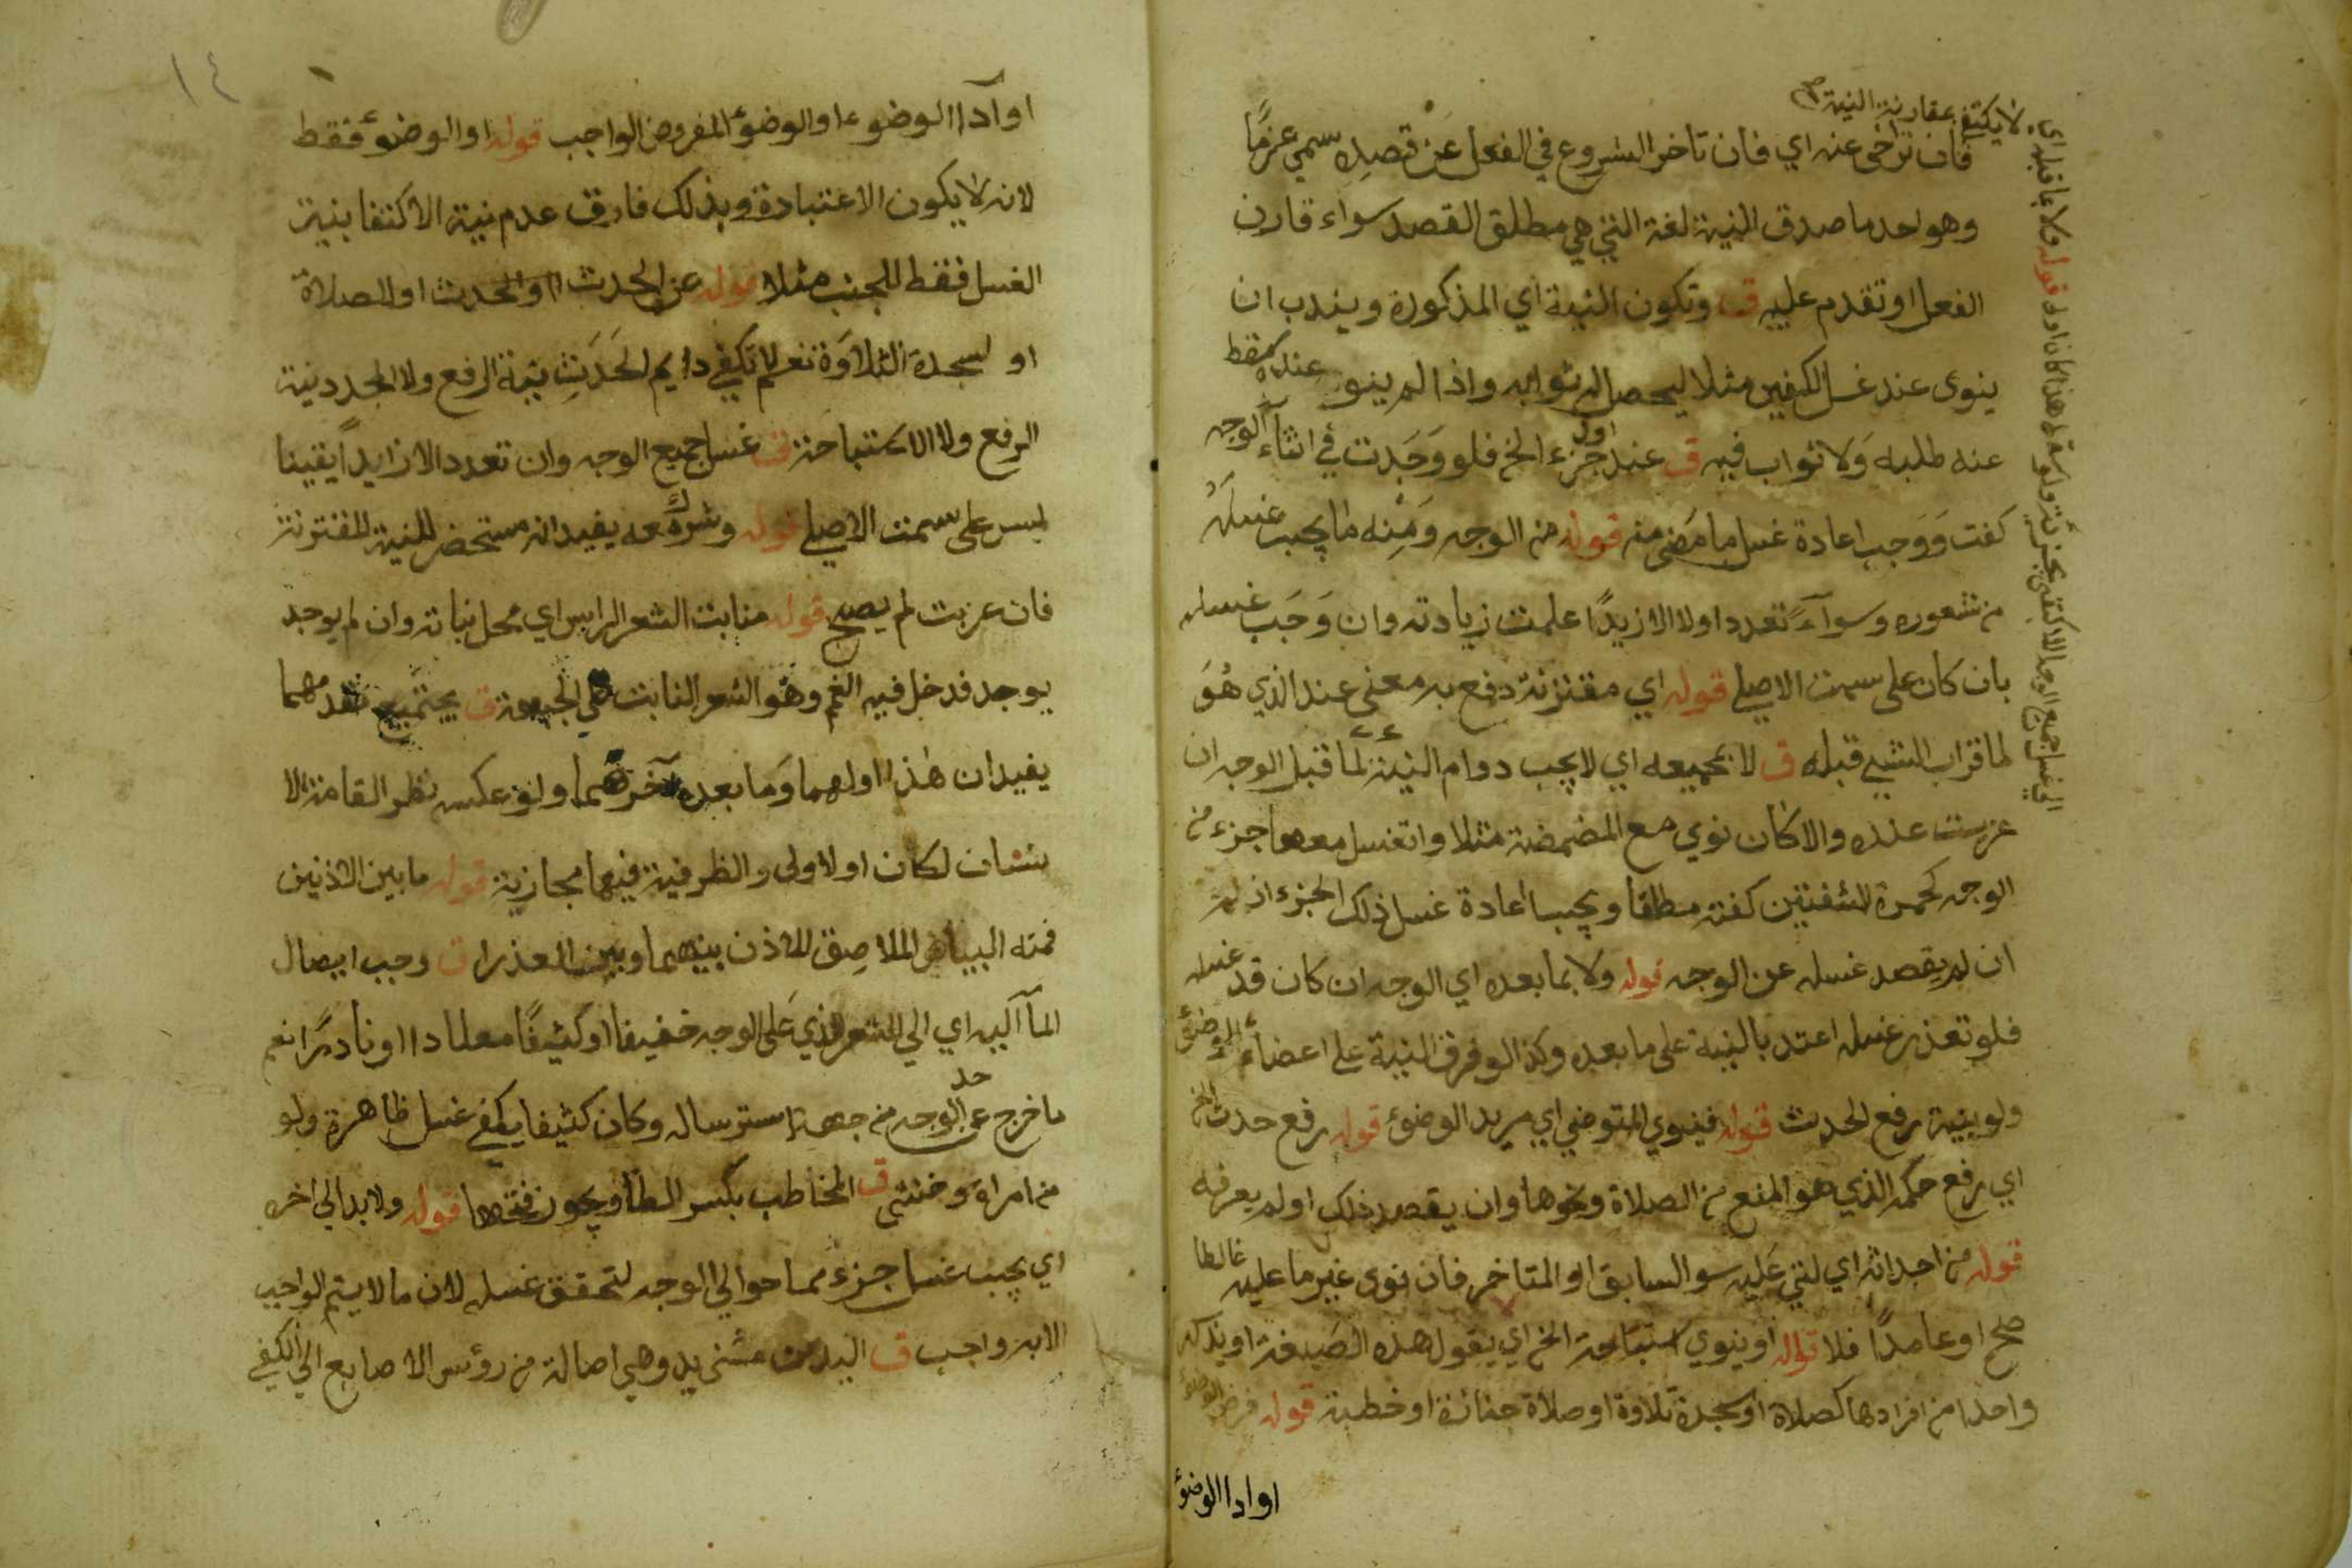 فان تراخى عنه اي فان تاخر الشروع في الفعل عن قصده سمي عزمًا
وهو احد ما صدق النية لغة التي هي مطلق القصد سواء قارن
الفعل او تقدم عليه ق وتكون النية اي المذكورة ويندب ان
ينوى عند غسل الكفين مثلا ليحصل له ثوابه واذا لم ينو عنده سقط
عنه طلبه وَلا ثواب فيه ق عند اول جزء الخ فلو وَجَدت في اثناء الوجه
كفت وَوَجب اعادة غسل ما مَضى منه قوله من الوجه وَمِنه ما يجب غسله
من شعوره وسوآءً تعدد او لا الا زيدًا علمت زيادته وان وَجَب غسله
بان كان على سمت الاصلي قوله اي مقترنة دفع به معنى عند الذي هُوَ
لما قراب الشيء قبله ق لا بجميعه اي لا يجب دوام النية لما قبل الوجه ان
عزبت عنده والا كان نوي مع المضمضة مثلا وانغسل معها جزء من
الوجه كحمرة الشفتين كفته مطلقا ويجب اعادة غسل ذلك الجزء ان
ان لم يقصد غسله عن الوجه قوله ولا بما بعده اي الوجه ان كان قد غسله
فلو تعذر غسله اعتد بالنية على ما بعده وكذا لو فرق النية على اعضاء الوضوء
ولو بنية رفع الحدث قوله فينوي المتوضي اي مريد الوضوء قوله رفع حدث الخ
اي رفع حكمه الذي هو المنع من الصلاة ونحوها وان يقصد ذلك او لم يعرفه
قوله من احداثه اي التي عَليه سوا السابق او المتاخر فان نوى غير ما عليه غالطا
صح او عامدًا فلا قوله او ينوي استباحة الخ اي يقول هذه الصَيغة او يذكر
واحدا من افرادها كصلاة او سجدة تلاوة او صلاة جنازة او خطبة قوله فرض الوضوء
او ادا الوضوء
لا يكتفي بمقارنة النية صح
١٤
او آدا الوضوء او الوضوء المفروض الواجب قوله او الوضوء فقط
لانه لا يكون الا عتبادة وبذلك فارق عدم نية الاكتفا بنية
الغسل فقط للجنب مثلا قوله عن الحدث او الحدث او الصلاة
او لسجدة التلاوَة نعم لا تكفي دايم الحَدَثِ نية الرفع ولا المجدد نية
الرفع ولا الاستباحة ق غسل جميع الوجه وان تعدد الا زايداً يقينا
ليس على سمت الاصلي قوله وشرك معه يفيد انه مستحضر للنية المقترنة
فان عزبت لم يصح قوله منابت الشعر الراس اي محل نباته وان لم يوجد
يوجد فدخل فيه الغم وهو الشعر النابت على الجبهة ق يجتمع مقدمهما
يفيد ان هذا اولهما وَما بعده آخرهما ولو عكس نظر القامة الا
نسان لكان اولا ولى والظرفية فيهما مجازية قوله ما بين الاذنين
فمنه البياض الملاصِق للاذن بينهما وبين العذر ق وجب ايصال
المآ اليه اي الي الشعر الذي عَلى الوجه خفيفا او كثيفًا معتادا او نادرًا نعم
ما خرج عن حد الوجه من جهة استرساله وكان كثيفا يكفي غسل ظاهره ولو
من امراة وخنثى ق المخاطب بكسر الطا ويجوز فتحها قوله ولا بد الى اخره
اي يجب غسل جزء مما حوالي الوجه لتحقق غسله لان ما لا يتم الواجب
الا به واجب ق اليدين مثنى يد وهي اصالة من رؤس الاصابع الي الكفي